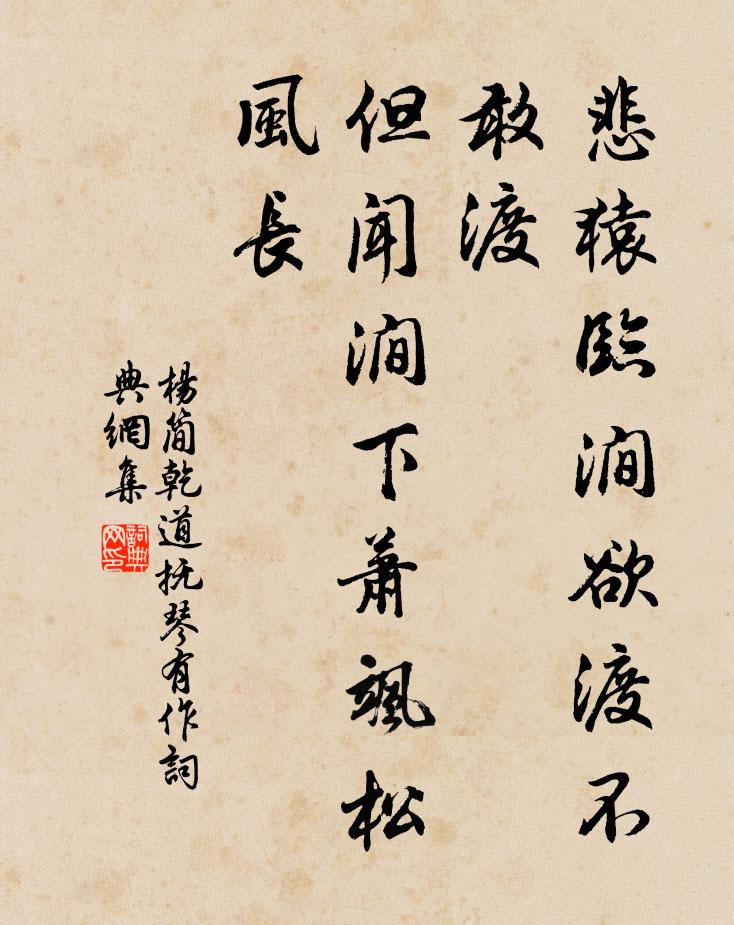 悲猿臨澗欲渡不
敢渡
但聞澗下蕭颯松
風長
楊簡乾道抚琴有作詞
典網集
詞典
网印